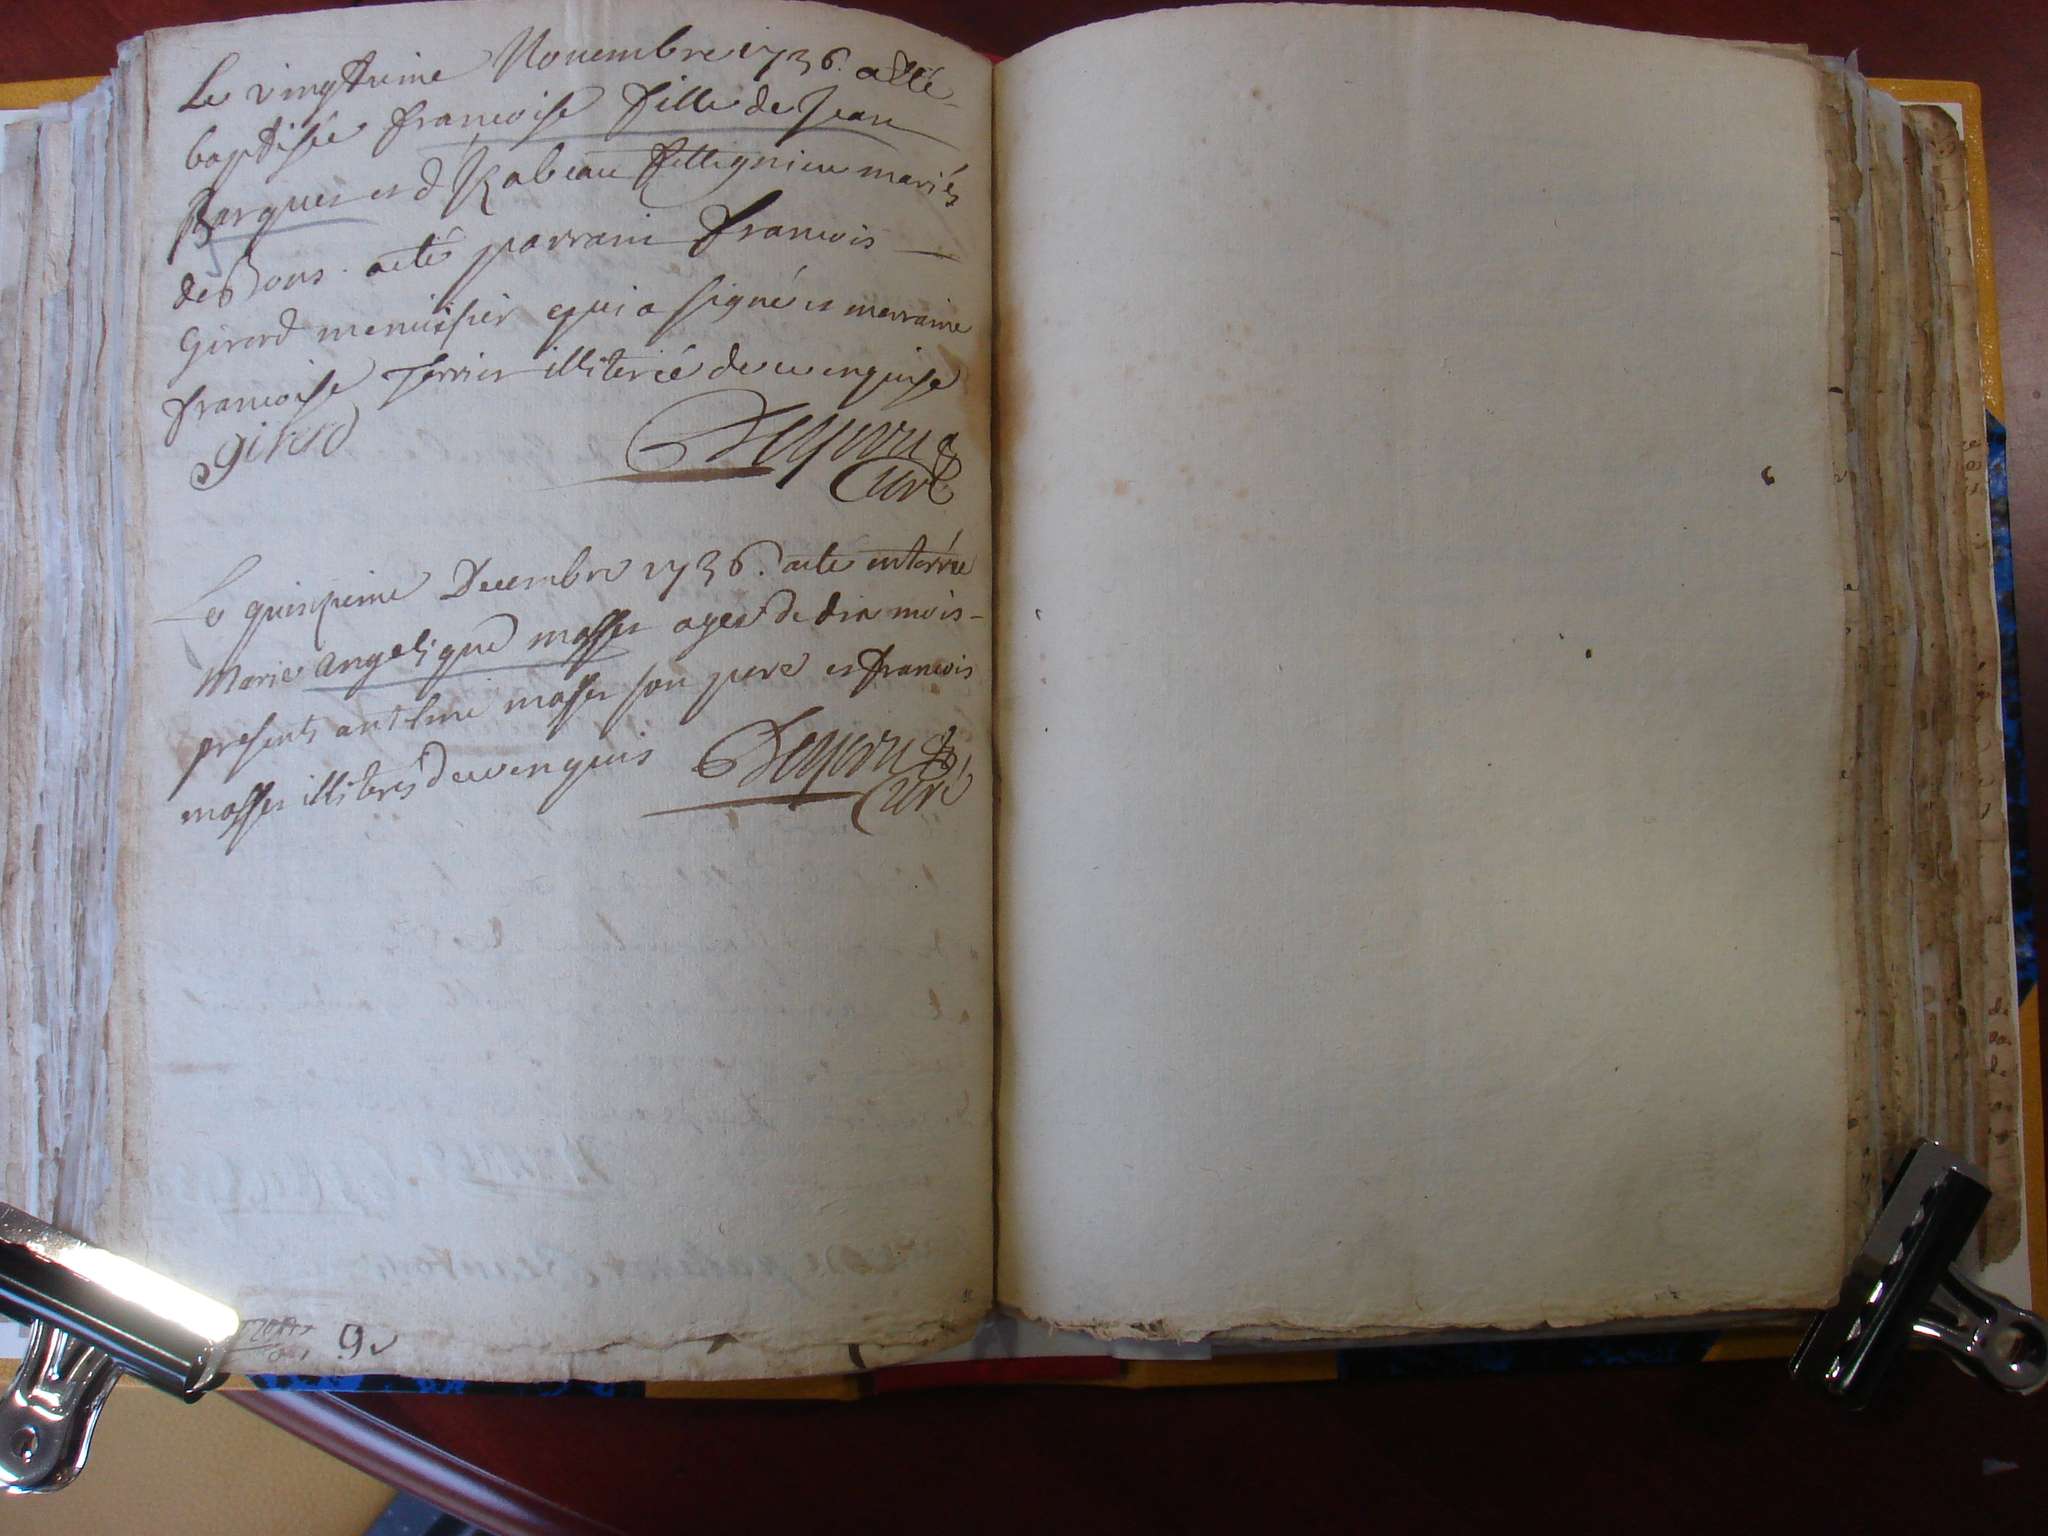 Le vingtieme Nouembre 1736. a esté
baptisée francoise fille de Jean
Barques et d Rabeau mariés
de Bons. a eté parrain francois
Girard menuisier qui a signé et marraine
francoise Terrier illiterée de ce enquise
girard
Curé
Le quinzieme Decembre 1736. a eté enterrée
Marie angelique masson agée de dix mois
presents anthme masson son pere et francois
masson illiterés de ce enquis
Curé
9v